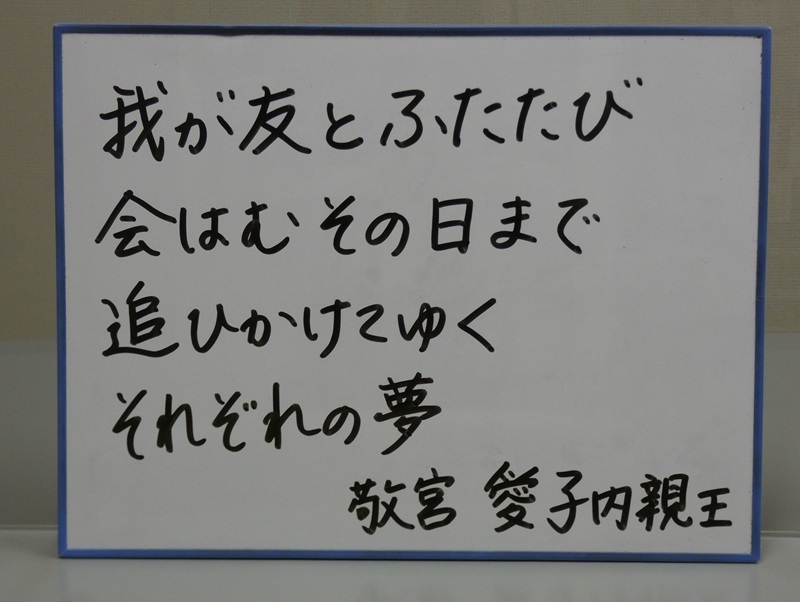 我が友とふたたび
会はむその日まで
追ひかけてゆく
それぞれの夢
敬宮 愛子内親王